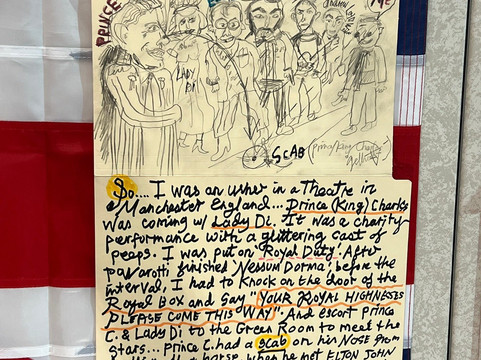 PRINCE
LADY
DI
SCAB
So.... I was an usher in a Theatre in
Manchester England... Prince (King) Charles
was coming w/ Lady Di. It was a charity
performance with a glittering cast of
peeps. I was put on 'Royal Duty'. After
pavarotti finished 'Nessum Dorma', before the
interval, I had to Knock on the door of the
Royal Box and Say "YOUR ROYAL HIGHNESSES
PLEASE COME THIS WAY". And escort prince
C. & Lady Di to the Green Room to meet the
stars... prince C. had a scab on his NOSE from
horse, when he met ELTON JOHN